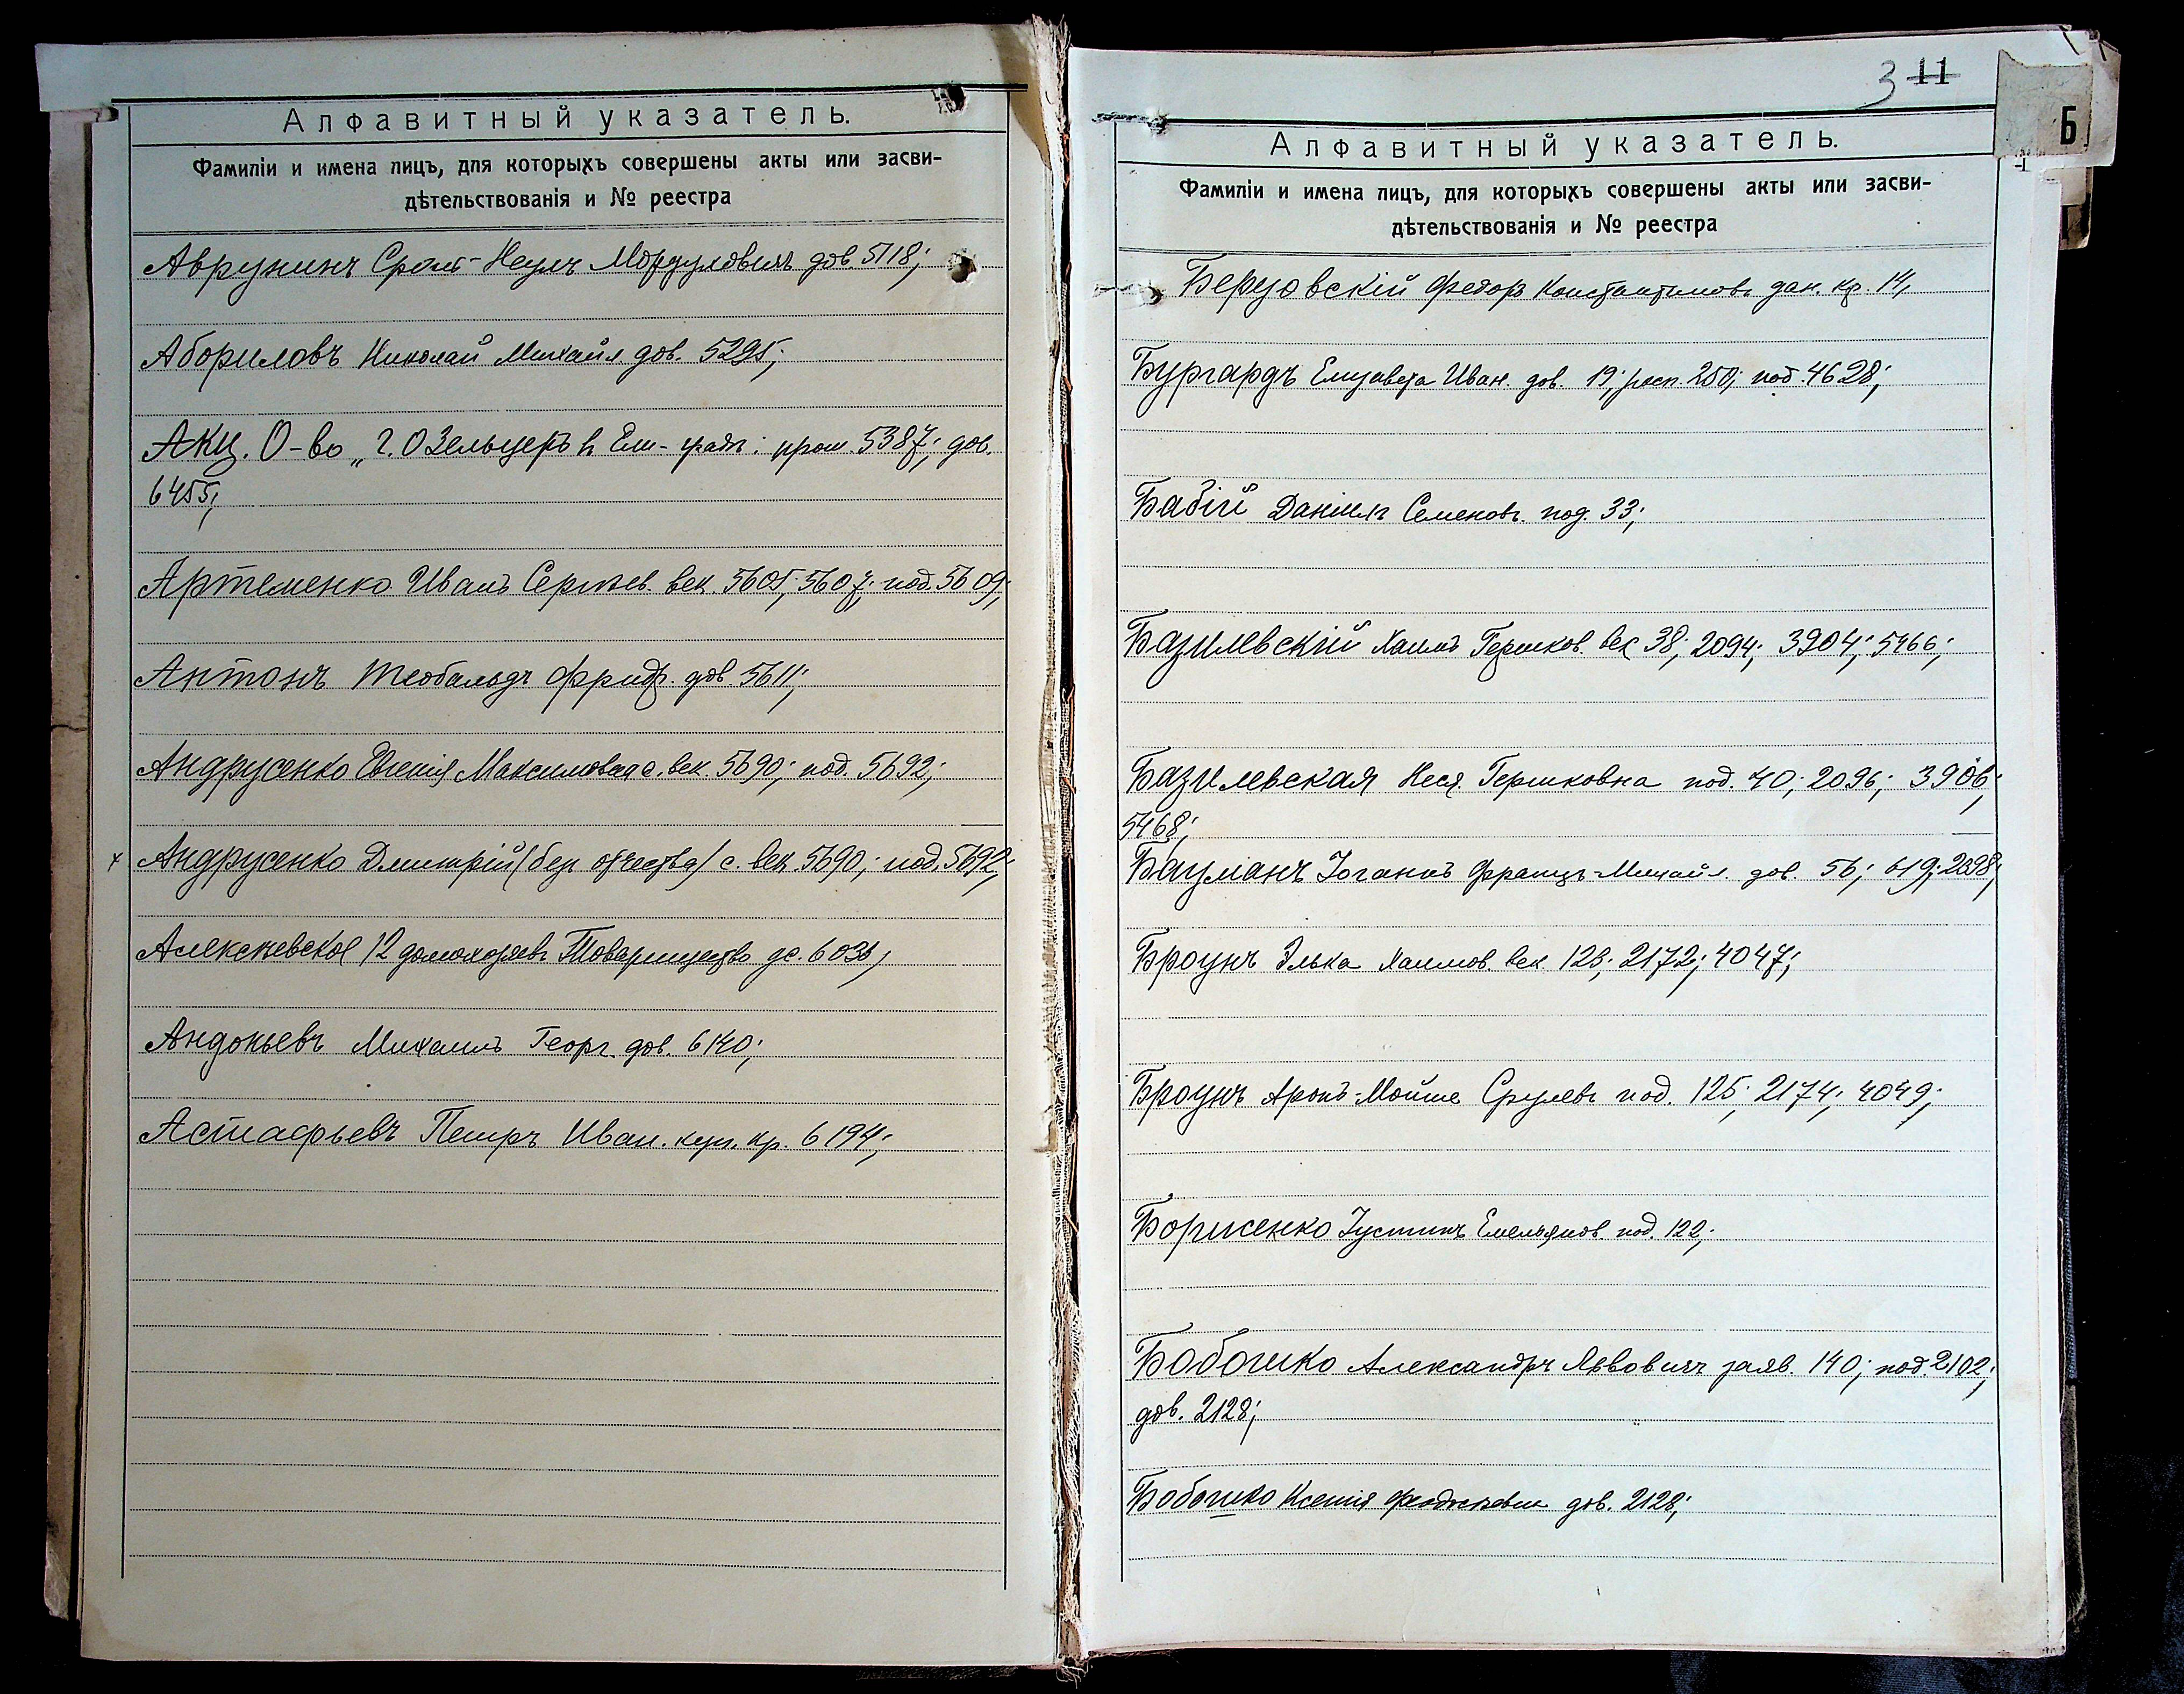 Алфавитный указатель.
Фамиліи и имена лицъ, для которыхъ совершены акты или засви-
дѣтельствованія и № реестра
Аврунинъ Сроль-Неухъ Мордуховичъ дов. 5118;
Абориловъ Николай Михайл. дов. 5295;
Акц. О-во „Г. О Зельцеръ въ Ели-градѣ: прот. 5387; дов.
6455;
Артеменко Иванъ Сергѣев. век. 5605; 5607; под. 5609;
Антонъ Теобальдъ Фридр. дов. 5611;
Андрусенко Евгенія Максимовна с. век. 5690; под. 5692;
Андрусенко Дмитрій (без отчества) с. век. 5690; под. 5692;
Алексѣевское 12 домохозяевъ Товарищество дс. 6036;
Андокьевъ Михаилъ Георг. дов. 6140;
Астафьевъ Петръ Иван. куп. кр. 6194;
3 11
Б
Алфавитный указатель.
Фамиліи и имена лицъ, для которыхъ совершены акты или засви-
дѣтельствованія и № реестра
Березовскій Федоръ Константиновъ дан. кр. 14,
Бургардъ Елизавета Иван. дов. 19; расп. 250; под. 4628;
Бабій Даніилъ Семеновъ. под. 33;
Базилевскій Хаимъ Гершков. век 38; 2094; 3904; 5466;
Базилевская Неся Гершковна под. 40; 2096; 3906;
5468;
Бауманъ Іоганъ Францъ-Михайл. дов. 56; 619; 2698;
Броунъ Элька Хаимов. век. 128; 2172; 4047;
Броунъ Аронъ-Мойше Срулевъ под. 125; 2174; 4049;
Борисенко Іустинъ Емельянов. под. 122;
Бобошко Александръ Львовичъ заяв. 140; под. 2102;
дов. 2128;
Бобошко Ксенія Феодосіевна дов. 2128;